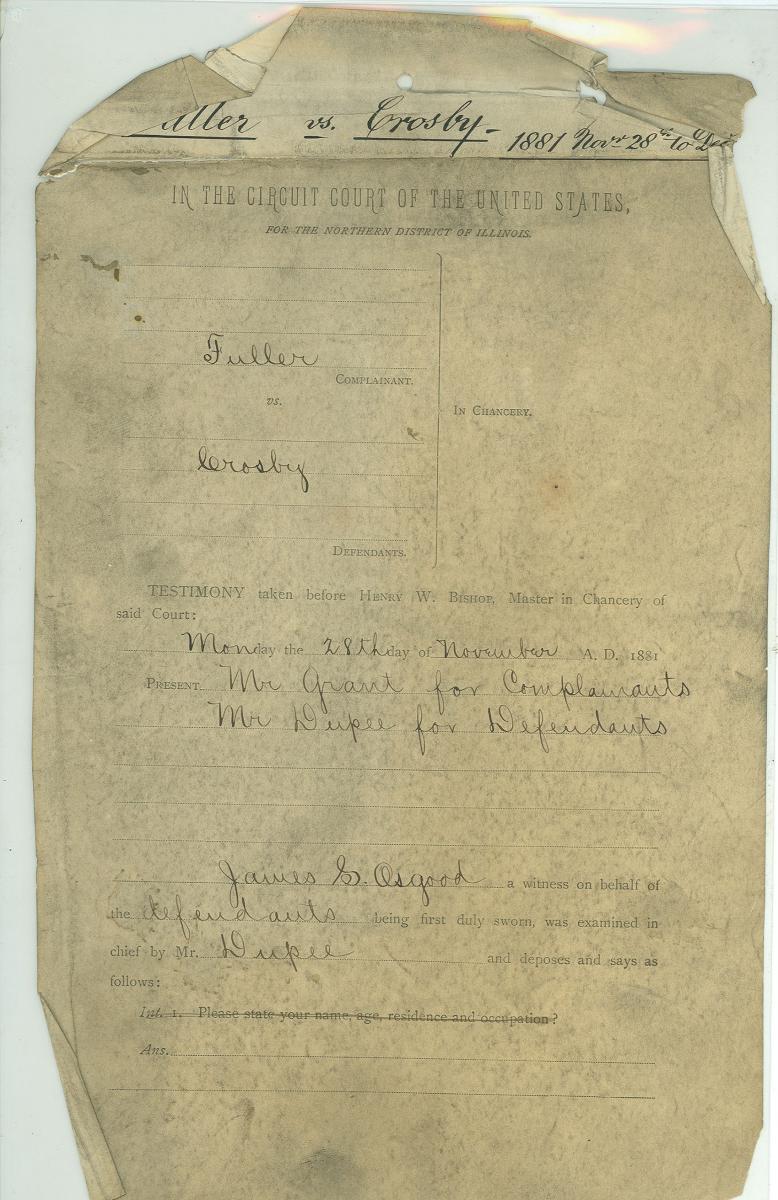 uller vs. Crosby - 1881 Novr 28th to Dec
IN THE CIRCUIT COURT OF THE UNITED STATES,
FOR THE NORTHERN DISTRICT OF ILLINOIS.
Fuller
COMPLAINANT.
vs.
IN CHANCERY.
Crosby
DEFENDANTS.
TESTIMONY taken before HENRY W. BISHOP, Master in Chancery of
said Court:
Monday the 28th day of November A. D. 1881
PRESENT. Mr Grant for Complainants
Mr Dupee for Defendants
James E. Osgood a witness on behalf of
the defendants being first duly sworn, was examined in
chief by Mr. Dupee and deposes and says as
follows:
Int. 1. Please state your name, age, residence and occupation?
Ans.